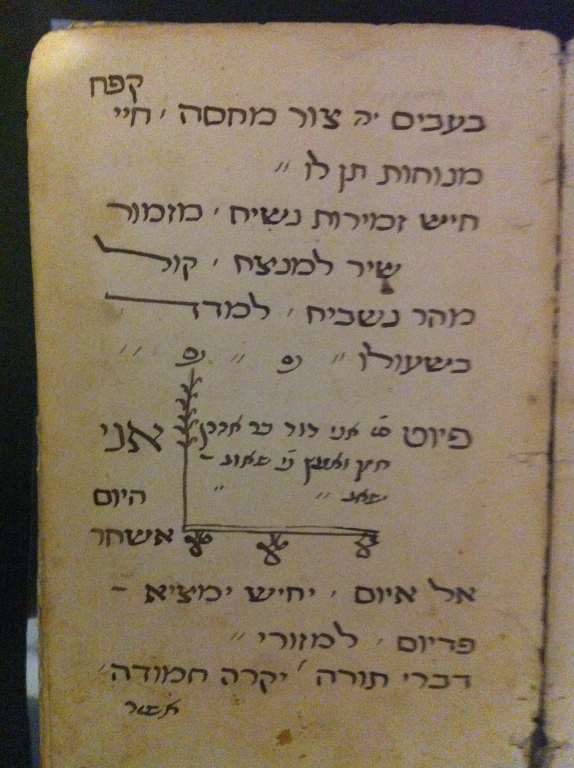 קפח
בעבים יה צור מחסה ׳ חיי
מנוחות תן לו ״
חיש זמירות נשיח ׳ מזמור
שיר למנצח ׳ קול
מהר נשביח ׳ למדד
בשעולו ״ נס ״ נס ״ ״
פיוט אני דוד בר אהרן אני
היום
אשחר
אל איום ׳ יחיש ימציא -
פדיום ׳ למזורי ״
דברי תורה ׳ יקרה חמודה ׳
אשר